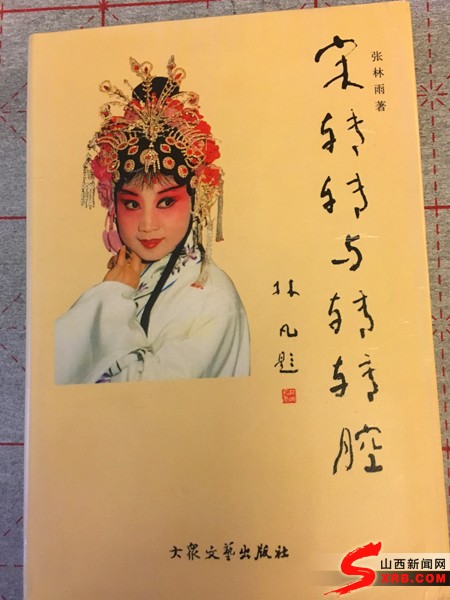 张林雨著
宋转转与转转腔
林凡题
大众文艺出版社
山西新闻网
SXRB.COM